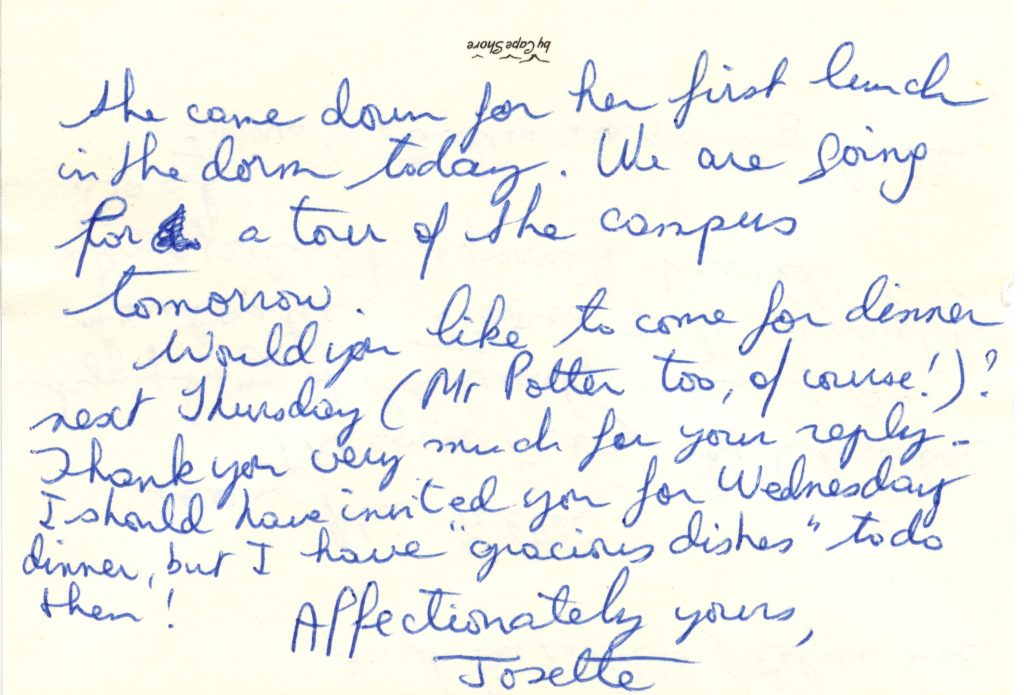 by Cape Shore
She came down for her first lunch
in the dorm today. We are going
for a tour of the campus
tomorrow.
Would you like to come for dinner
next Thursday (Mr Potter too, of course!)?
Thank you very much for your reply -
I should have invited you for Wednesday
dinner, but I have "gracious dishes" to do
then!
Affectionately yours,
Josette